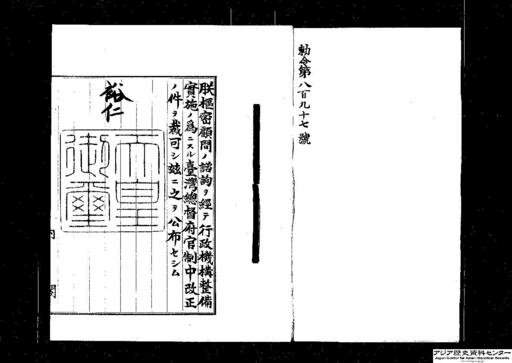 勅令第八百九十七號
朕樞密顧問ノ諮詢ヲ經テ行政機構整備
實施ノ爲ニスル臺灣總督府官制中改正
ノ件ヲ裁可シ玆ニ之ヲ公布セシム
裕仁
天皇
御璽
内
閣
アジア歴史資料センター
Japan Center for Asian Historical Records